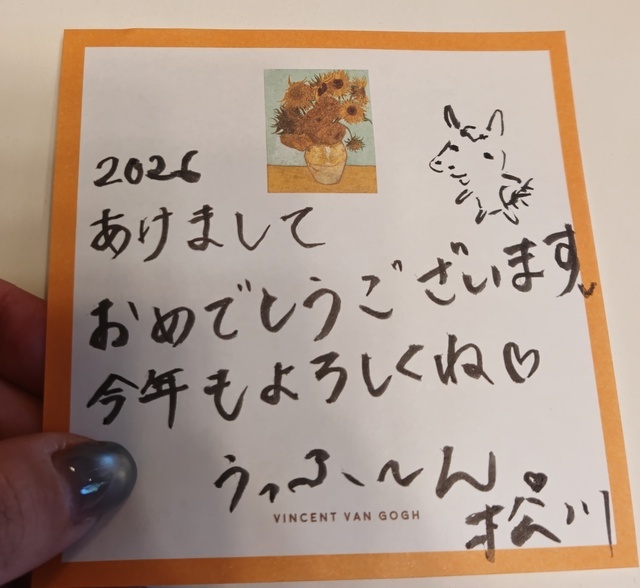 2026
あけまして
おめでとうございます
今年もよろしくね♡
うっふ〜ん♥
VINCENT VAN GOGH
松川